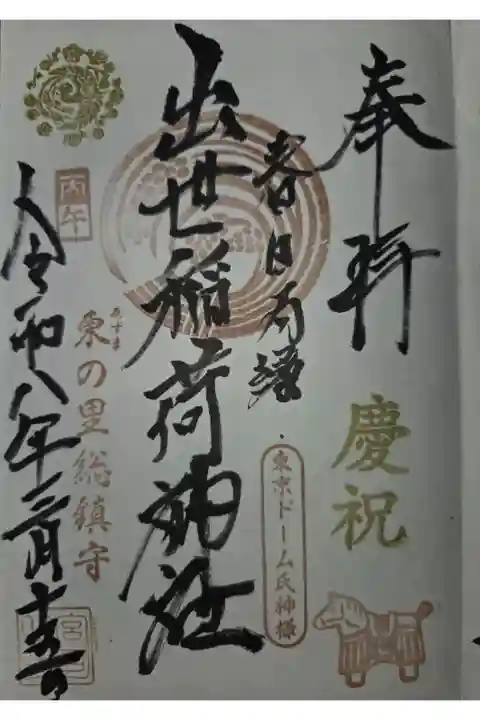 奉拝
慶祝
春日局縁
東京ドーム氏神様
出世稲荷神社
丙午
あずま
東の里総鎮守
令和八年二月十五日
宮